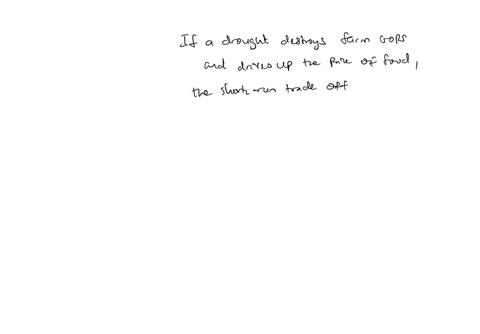 If a drought destroys farm crops
and drives up the price of food,
the short-run trade off